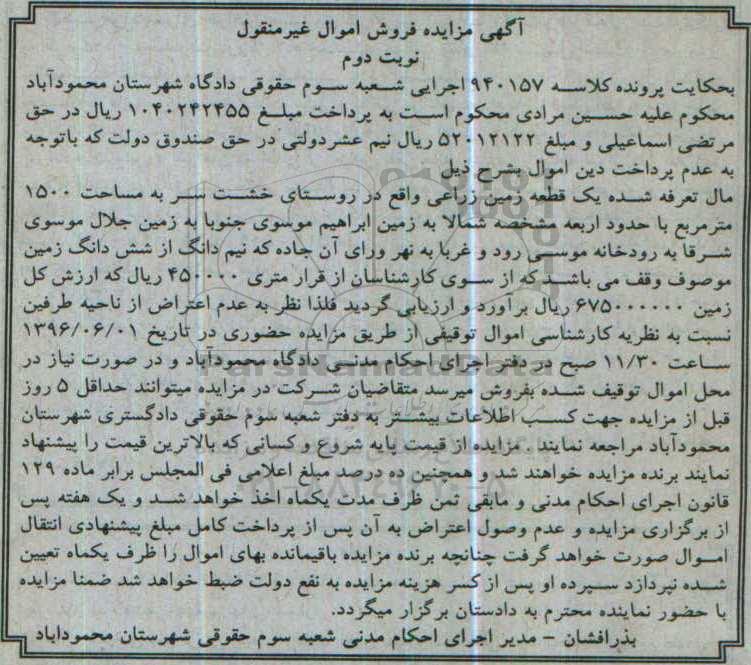 آگهی مزایده فروش اموال غیرمنقول
نوبت دوم
بحکایت پرونده کلاسه ۹۴۰۱۵۷ اجرایی شعبه سوم حقوقی دادگاه شهرستان محمودآباد
محکوم علیه حسین مرادی محکوم است به پرداخت مبلغ ۱۰۴۰۲۴۲۴۵۵ ریال در حق
مرتضی اسماعیلی و مبلغ ۵۲۰۱۲۱۲۲ ریال نیم عشردولتی در حق صندوق دولت که باتوجه
به عدم پرداخت دین اموال بشرح ذیل
مال تعرفه شده یک قطعه زمین زراعی واقع در روستای خشت سر به مساحت ۱۵۰۰
مترمربع با حدود اربعه مشخصه شمالا به زمین ابراهیم موسوی جنوبا به زمین جلال موسوی
شرقا به رودخانه موسی رود و غربا به نهر ورای آن جاده که نیم دانگ از شش دانگ زمین
موصوف وقف می باشد که از سوی کارشناسان از قرار متری ۴۵۰۰۰۰ ریال که ارزش کل
زمین ۶۷۵۰۰۰۰۰۰ ریال برآورد و ارزیابی گردید فلذا نظر به عدم اعتراض از ناحیه طرفین
نسبت به نظریه کارشناسی اموال توقیفی از طریق مزایده حضوری در تاریخ ۱۳۹۶/۰۶/۰۱
ساعت ۱۱/۳۰ صبح در دفتر اجرای احکام مدنی دادگاه محمودآباد و در صورت نیاز در
محل اموال توقیف شده بفروش میرسد متقاضیان شرکت در مزایده میتوانند حداقل ۵ روز
قبل از مزایده جهت کسب اطلاعات بیشتر به دفتر شعبه سوم حقوقی دادگستری شهرستان
محمودآباد مراجعه نمایند . مزایده از قیمت پایه شروع و کسانی که بالاترین قیمت را پیشنهاد
نمایند برنده مزایده خواهند شد و همچنین ده درصد مبلغ اعلامی فی المجلس برابر ماده ۱۲۹
قانون اجرای احکام مدنی و مابقی ثمن ظرف مدت یکماه اخذ خواهد شد و یک هفته پس
از برگزاری مزایده و عدم وصول اعتراض به آن پس از پرداخت کامل مبلغ پیشنهادی انتقال
اموال صورت خواهد گرفت چنانچه برنده مزایده باقیمانده بهای اموال را ظرف یکماه تعیین
شده نپردازد سپرده او پس از کسر هزینه مزایده به نفع دولت ضبط خواهد شد ضمنا مزایده
با حضور نماینده محترم به دادستان برگزار میگردد.
بذرافشان - مدیر اجرای احکام مدنی شعبه سوم حقوقی شهرستان محموداباد
ParsNamadData